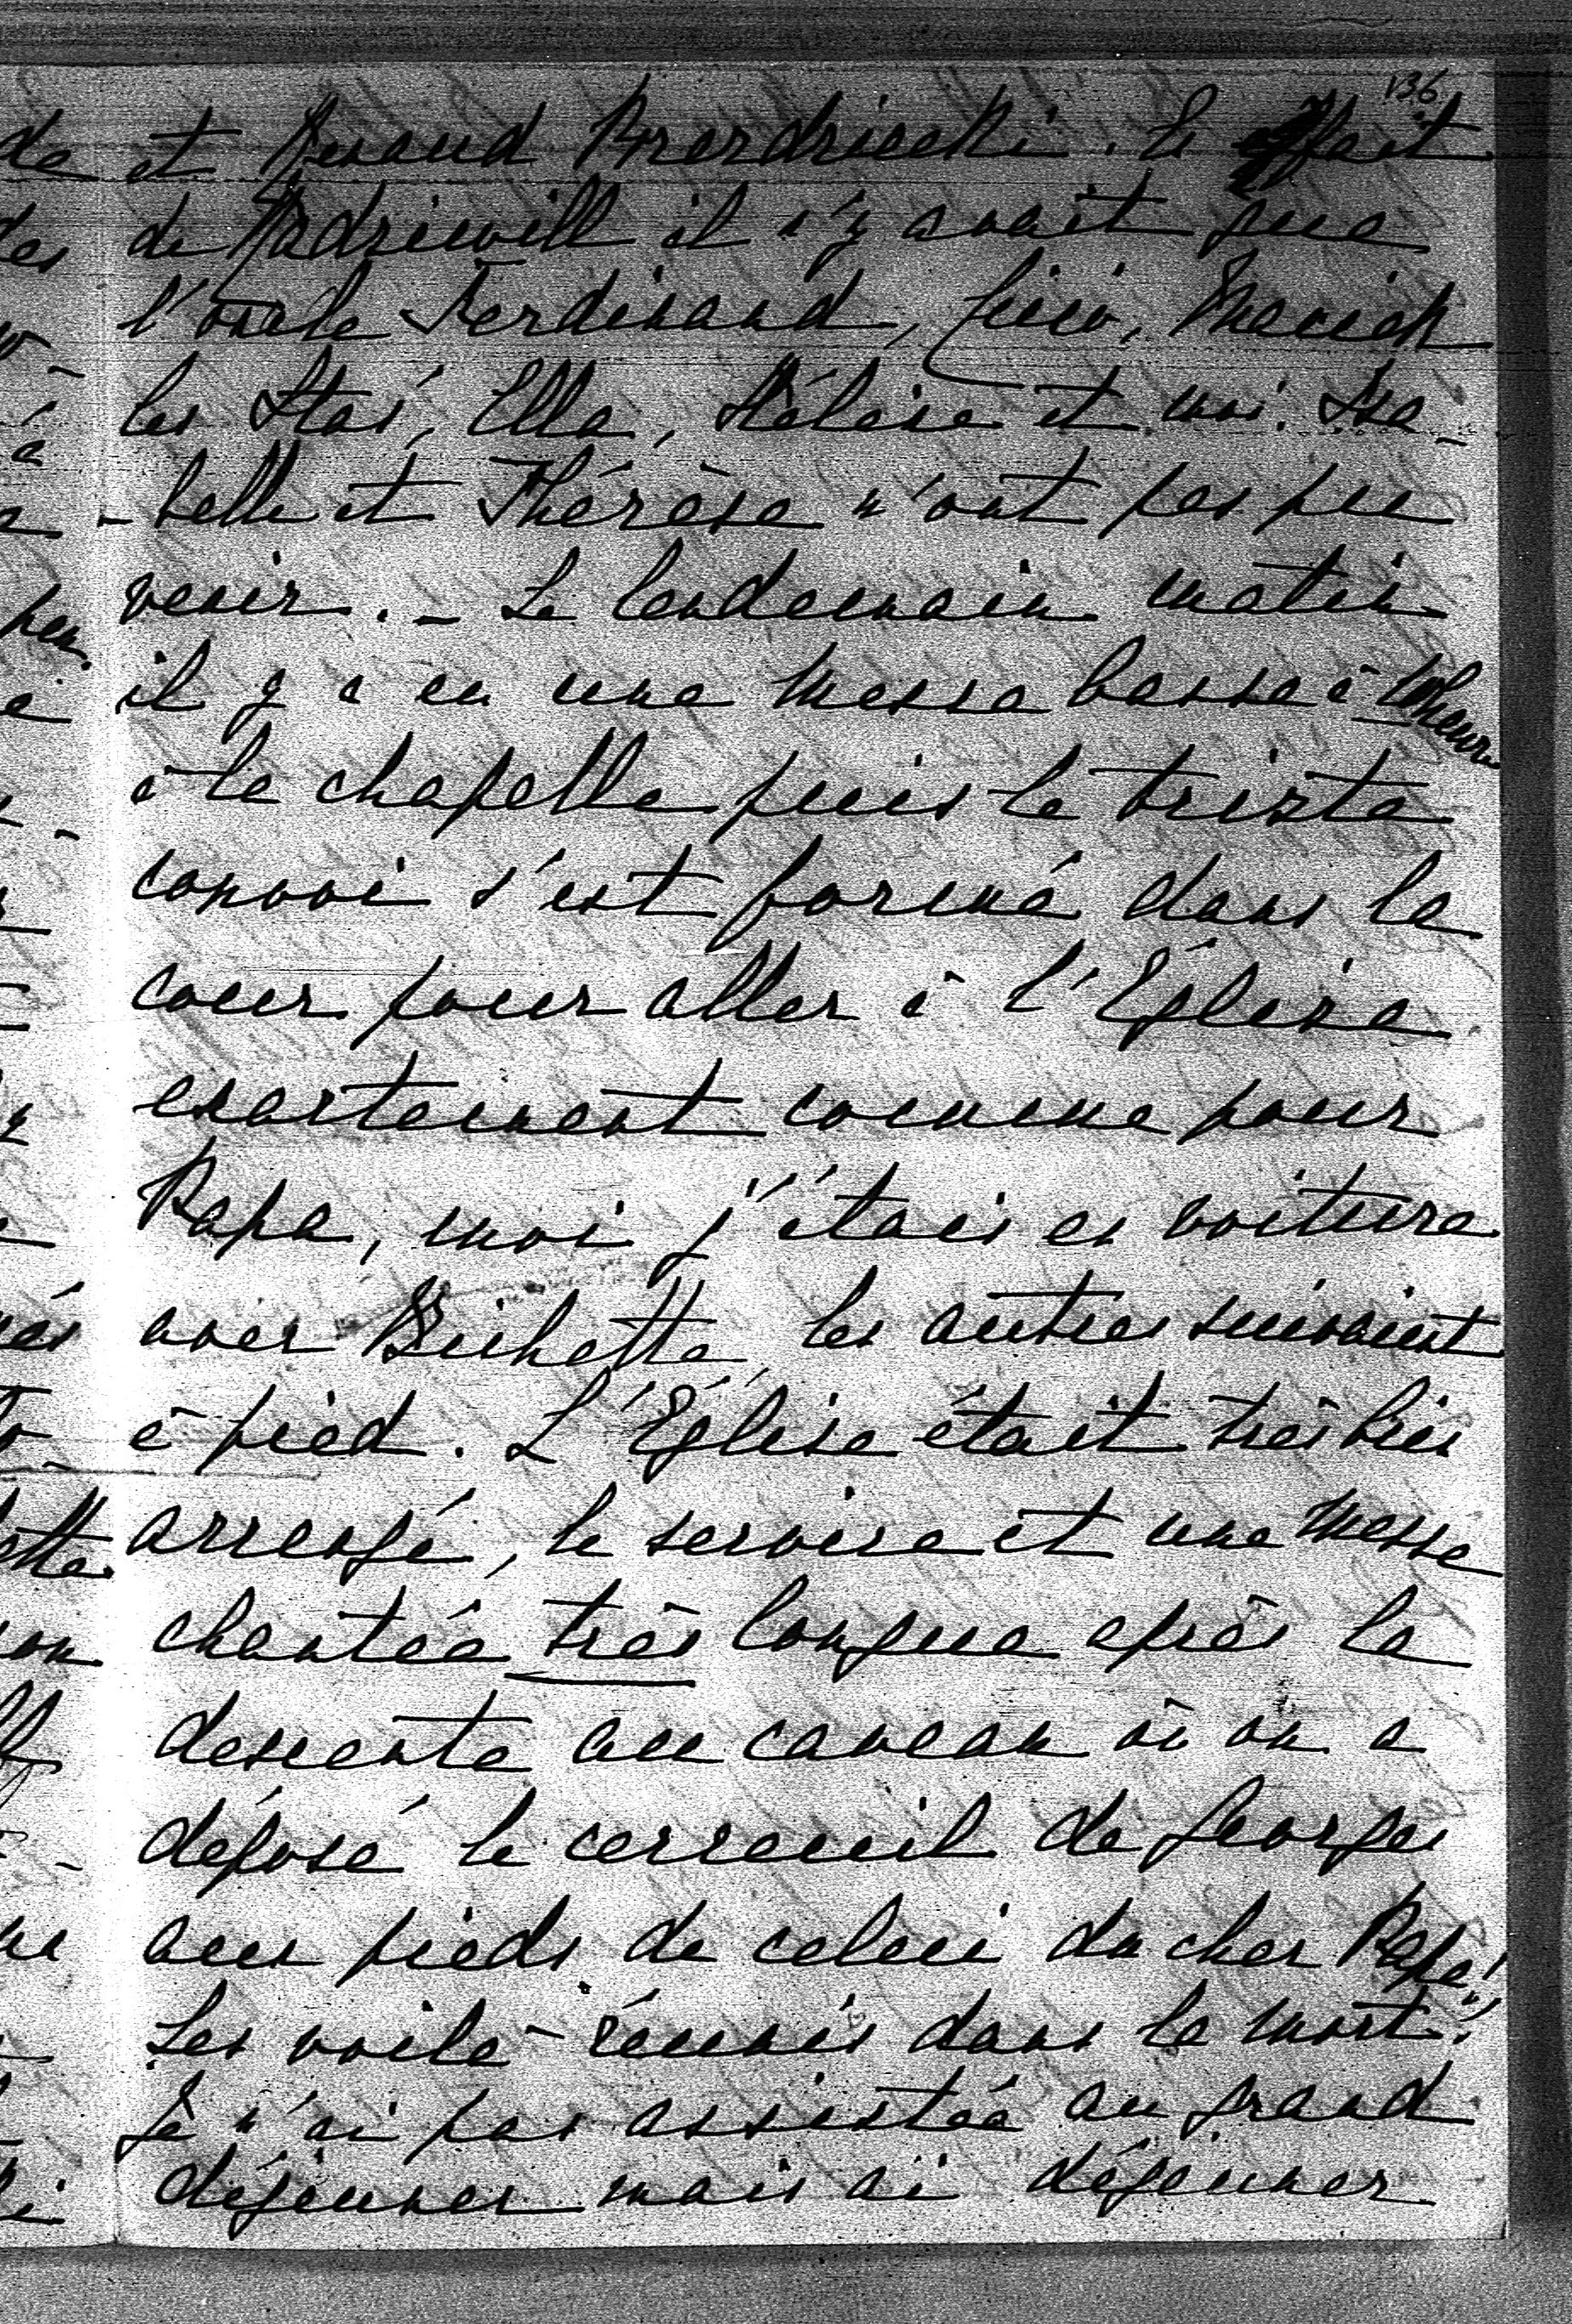 136
et Renaud Przezdziecki. En fait
de Radziwill il n'y avait que
l'oncle Ferdinand, Maciek
les Stas, Ella, Hélène et moi. Isa-
-belle et Thérèse n'ont pas pu
venir. - Le lendemain matin
il y a eu une Messe basse à heure
à la chapelle puis le triste
convoi s'est formé dans la
cour pour aller à l'Eglise
exactement comme pour
Papa, moi j'étais en voiture
avec Bichette, les autres suivaient
à pied. L'Eglise était très bien
arrangé, le service et une Messe
chantée très longue après la
descente au caveau où on a
déposé le cerceuil de Georges
aux pieds de celui du cher Papa!
Les voilà réunis dans la mort!
Je n'ai pas assistée au grand
déjeuner mais ai déjeuner